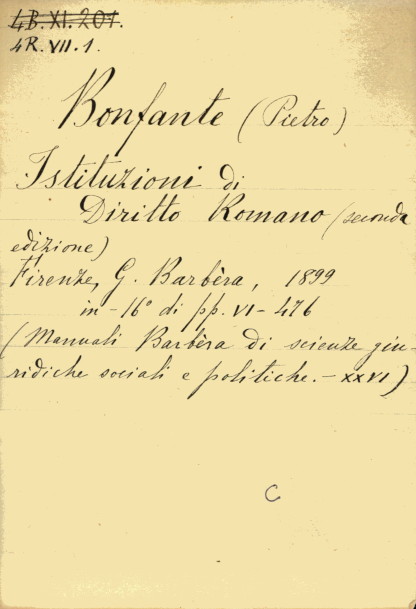 4B. XI. 201.
4R. VII. 1.
Bonfante (Pietro)
Istituzioni di
Diritto Romano (seconda
edizione)
Firenze, G. Barbèra, 1899
in-16° di pp. VI-476
(Manuali Barbèra di scienze giu-
ridiche sociali e politiche. - XXVI)
C